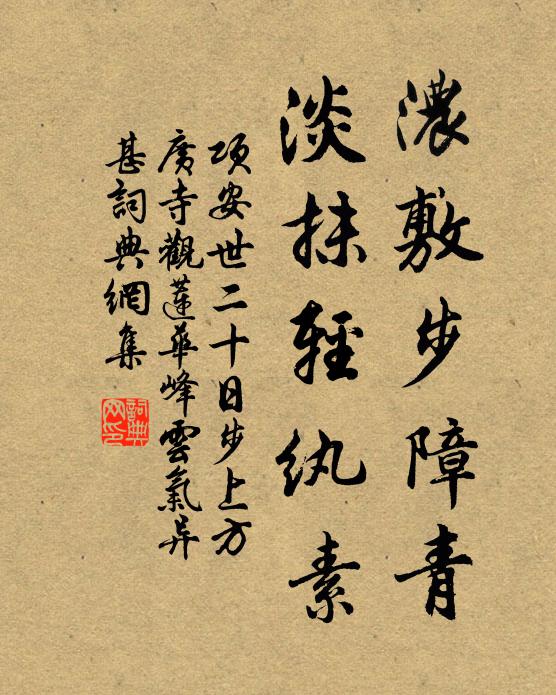 濃敷步障青
淡抹輕紈素
項安世二十日步上方
廣寺觀蓮華峰雲氣异
甚詞典網集
詞典网印